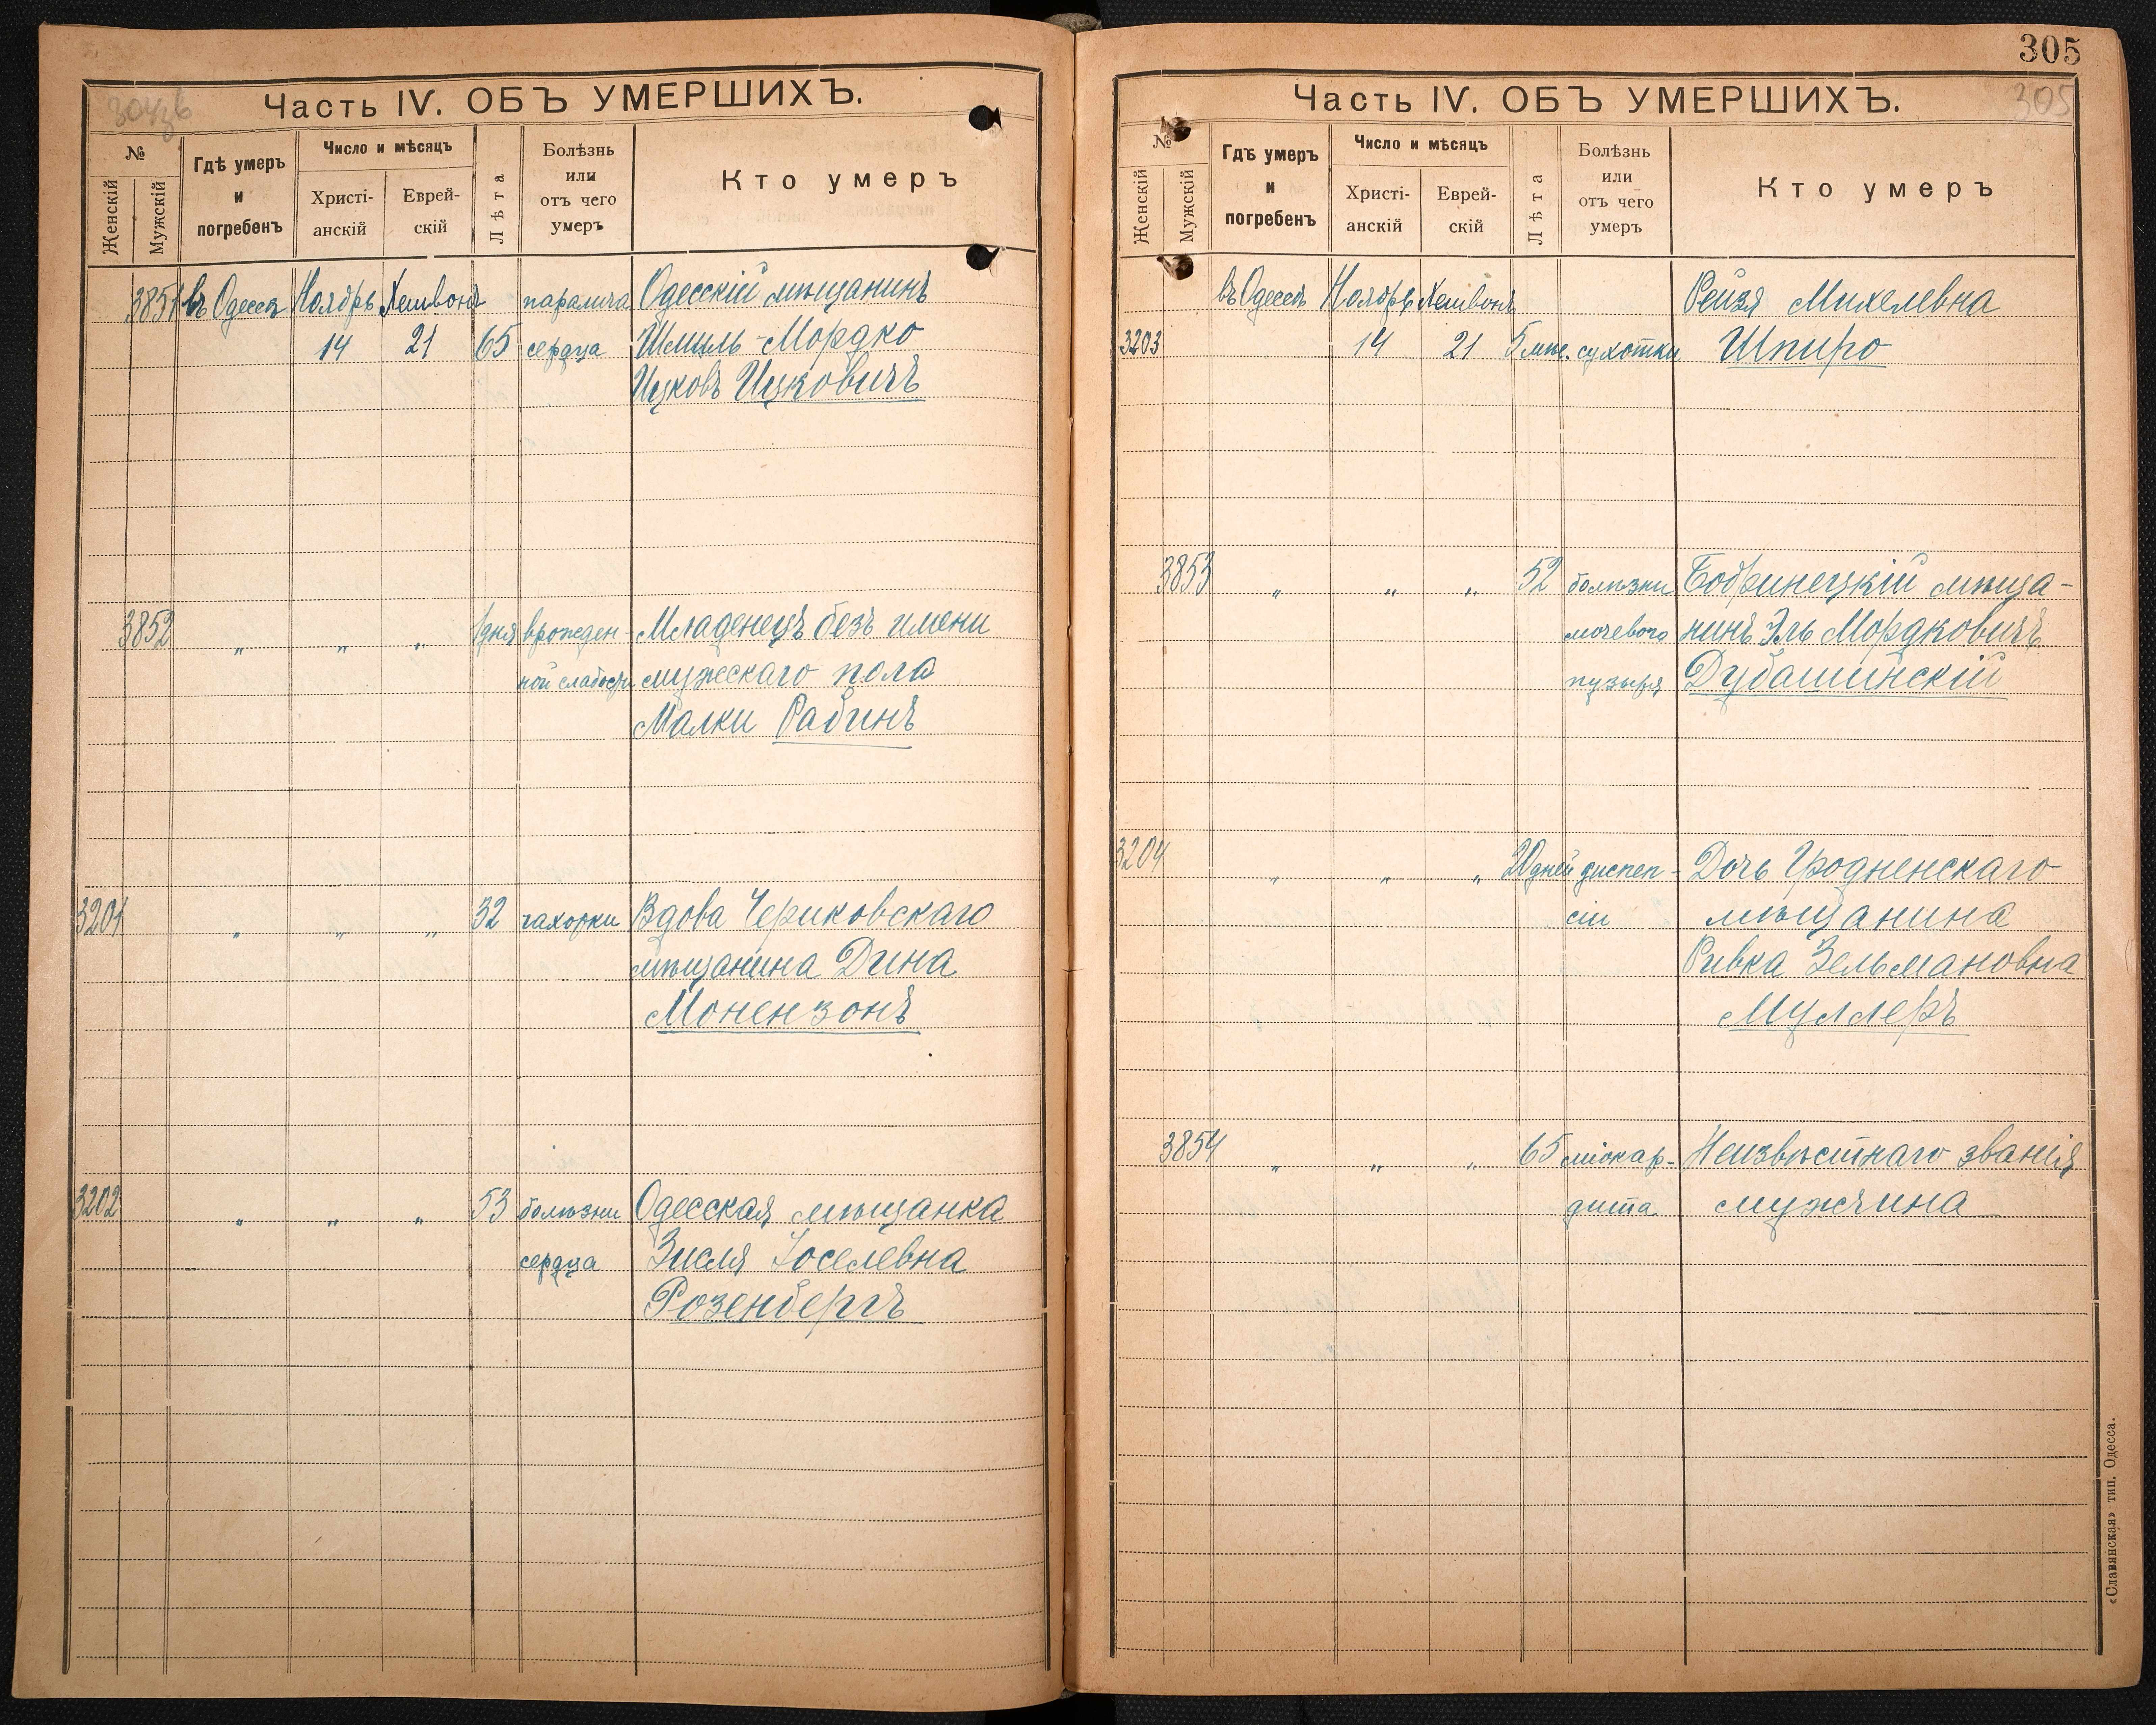 304зв
Часть IV. ОБЪ УМЕРШИХЪ.
№
Женскій
Мужскій
Гдѣ умеръ
и
погребенъ
Число и мѣсяцъ
Христі-
анскій
Еврей-
скій
Лѣта
Болѣзнь
или
отъ чего
умеръ
Кто умеръ
3851 въ Одессѣ Ноябрь Хешвонъ паралича Одесскій мѣщанинъ
14 21 65 сердца Шмиль-Мордко
Ицковъ Ицковичъ
3852 " " " 1 дня врожден- Младенецъ безъ имени
ной слабости мужескаго пола
Малки Рабинъ
3201 " " " 32 чахотки Вдова Чериковскаго
мѣщанина Дина
Монензонъ
3202 " " " 53 болѣзни Одесская мѣщанка
сердца Зисля Іоселевна
Розенбергъ
305
305
Часть IV. ОБЪ УМЕРШИХЪ.
№
Женскій
Мужскій
Гдѣ умеръ
и
погребенъ
Число и мѣсяцъ
Христі-
анскій
Еврей-
скій
Лѣта
Болѣзнь
или
отъ чего
умеръ
Кто умеръ
въ Одессѣ Ноябрь Хешвонъ Рейзя Михелевна
3203 14 21 5 мѣс. сухотки Шпиро
3853 " " " 52 болѣзни Бобринецкій мѣща-
мочевого нинъ Эль Мордковичъ
пузыря Дубашинскій
3204 " " " 20 дней диспеп- Дочь Гродненскаго
сіи мѣщанина
Ривка Зельмановна
Муллеръ
3854 " " " 65 міокар- Неизвѣстнаго званія
дита мужчина
«Славянская» тип. Одесса.